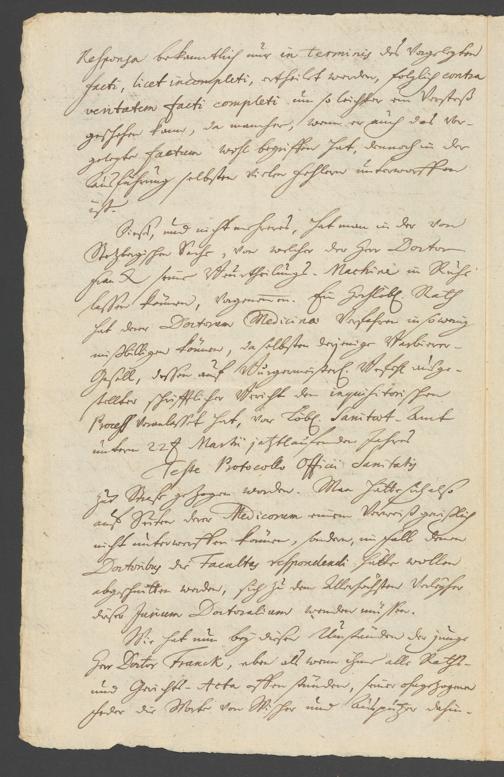 Responsa bekanntlich nur in terminis des vorgelegten
facti, licet incompleti, ertheilet werden, folglich contra
veritatem facti completi um so leichter ein Verstoß
geschehen kann, da mancher, wenn er auch das vor-
gelegte factum wohl begriffen hat, dennoch in der
Ausführung selbsten vielen Fehlern unterworffen
ist.
Dieses, und nicht mehreres, hat man in der von
Sache, von welcher der Herr Doctor
seine Beurtheilungs-Machine in Ruhe
lassen können, vorgenommen. Ein Hochlöbl. Rath
hat derer Doctorum Medicinae Verfahren in so wenig
mißbilligen können, da selbsten derjenige Barbierer-
Gesell, dessen auf Burgermeisterl. Befehl ausge-
stellter schrifftlicher Bericht den inquisitorischen
Process veranlasset hat, vor Löbl. Sanitat-Amt
unterm 22t Martii jetztlauffenden Jahres
Teste Protocollo Officii Sanitatis
zur Straf gezogen worden. Man hätte sich also
auf Seiten derer Medicorum einem Verweiß
nicht unterwerffen können, sondern, im Fall denen
Doctoribus die Facultas respondendi hätte wollen
abgeschnitten werden, sich zu dem Allerhöchsten Verleyher
dieses Jurium Doctoralium wenden müssen.
Wie hat nun bey diesen Umständen der junge
Herr Doctor Franck, eben als wenn ihme alle Raths-
und Gerichts-Acta offen stünden, seiner ohngezogenen
Feder die Worte von Wischer und Ausputzer dahin-